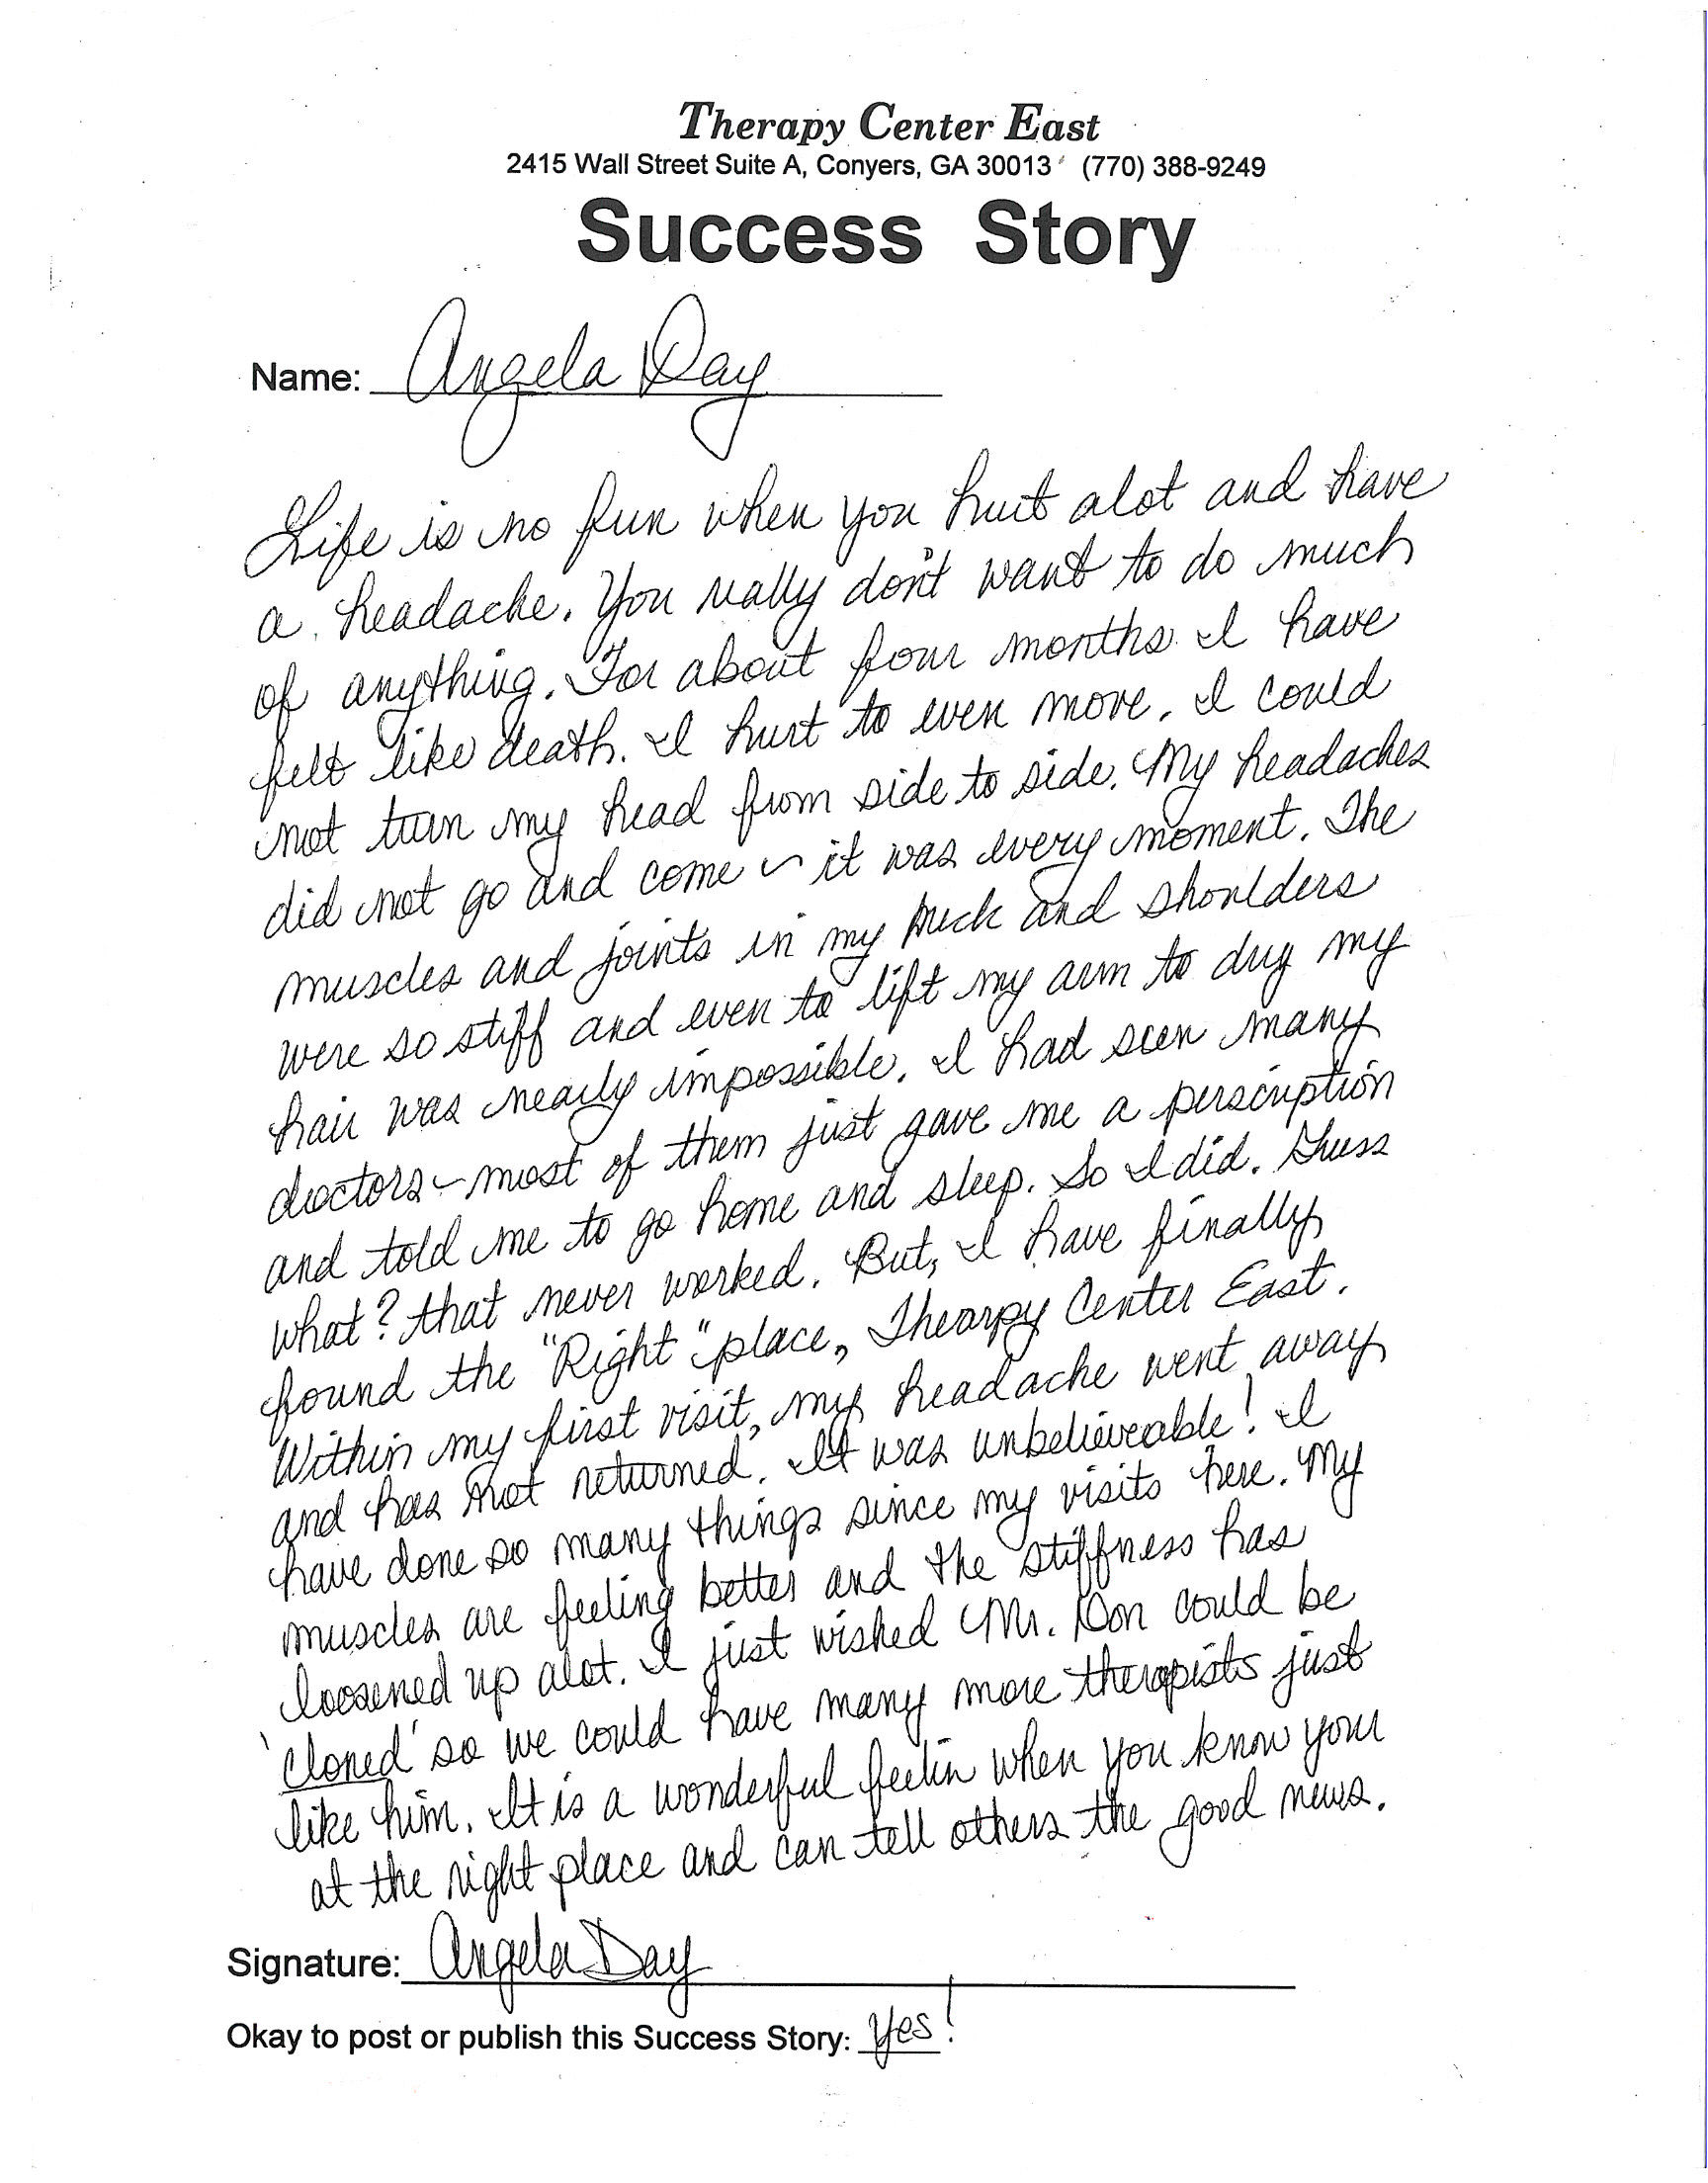 Therapy Center East
2415 Wall Street Suite A, Conyers, GA 30013 (770) 388-9249
Success Story
Name: Angela Day
Life is no fun when you hurt alot and have
a headache. You really don't want to do much
of anything. For about four months I have
felt like death. I hurt to even move. I could
not turn my head from side to side. My headaches
did not go and come - it was every moment. The
muscles and joints in my neck and shoulders
were so stiff and even to lift my arm to dry my
hair was nearly impossible. I had seen many
doctors - most of them just gave me a perscription
and told me to go home and sleep. So I did. Guess
what? that never worked. But, I have finally
found the "Right" place, Thearpy Center East.
Within my first visit, my headache went away
and has not returned. It was unbelieveable! I
have done so many things since my visits here. My
muscles are feeling better and the stiffness has
loosened up alot. I just wished Mr. Don could be
'cloned' so we could have many more therapists just
like him. It is a wonderful feelin when you know your
at the right place and can tell others the good news.
Signature: Angela Day
Okay to post or publish this Success Story: Yes!